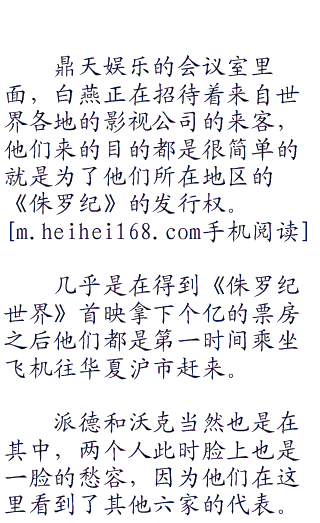 鼎天娱乐的会议室里
面，白燕正在招待着来自世
界各地的影视公司的来客，
他们来的目的都是很简单的
就是为了他们所在地区的
《侏罗纪》的发行权。
[m.heihei168.com手机阅读]
几乎是在得到《侏罗纪
世界》首映拿下个亿的票房
之后他们都是第一时间乘坐
飞机往华夏沪市赶来。
派德和沃克当然也是在
其中，两个人此时脸上也是
一脸的愁容，因为他们在这
里看到了其他六家的代表。